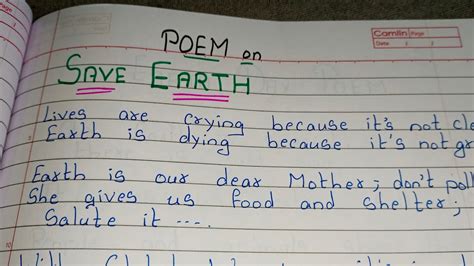 Camlin Page
Date
POEM on
SAVE EARTH
Lives are crying because it's not
Earth is dying because it's not
Earth is our dear Mother; don't
She gives us food and shelter;
Salute it ....